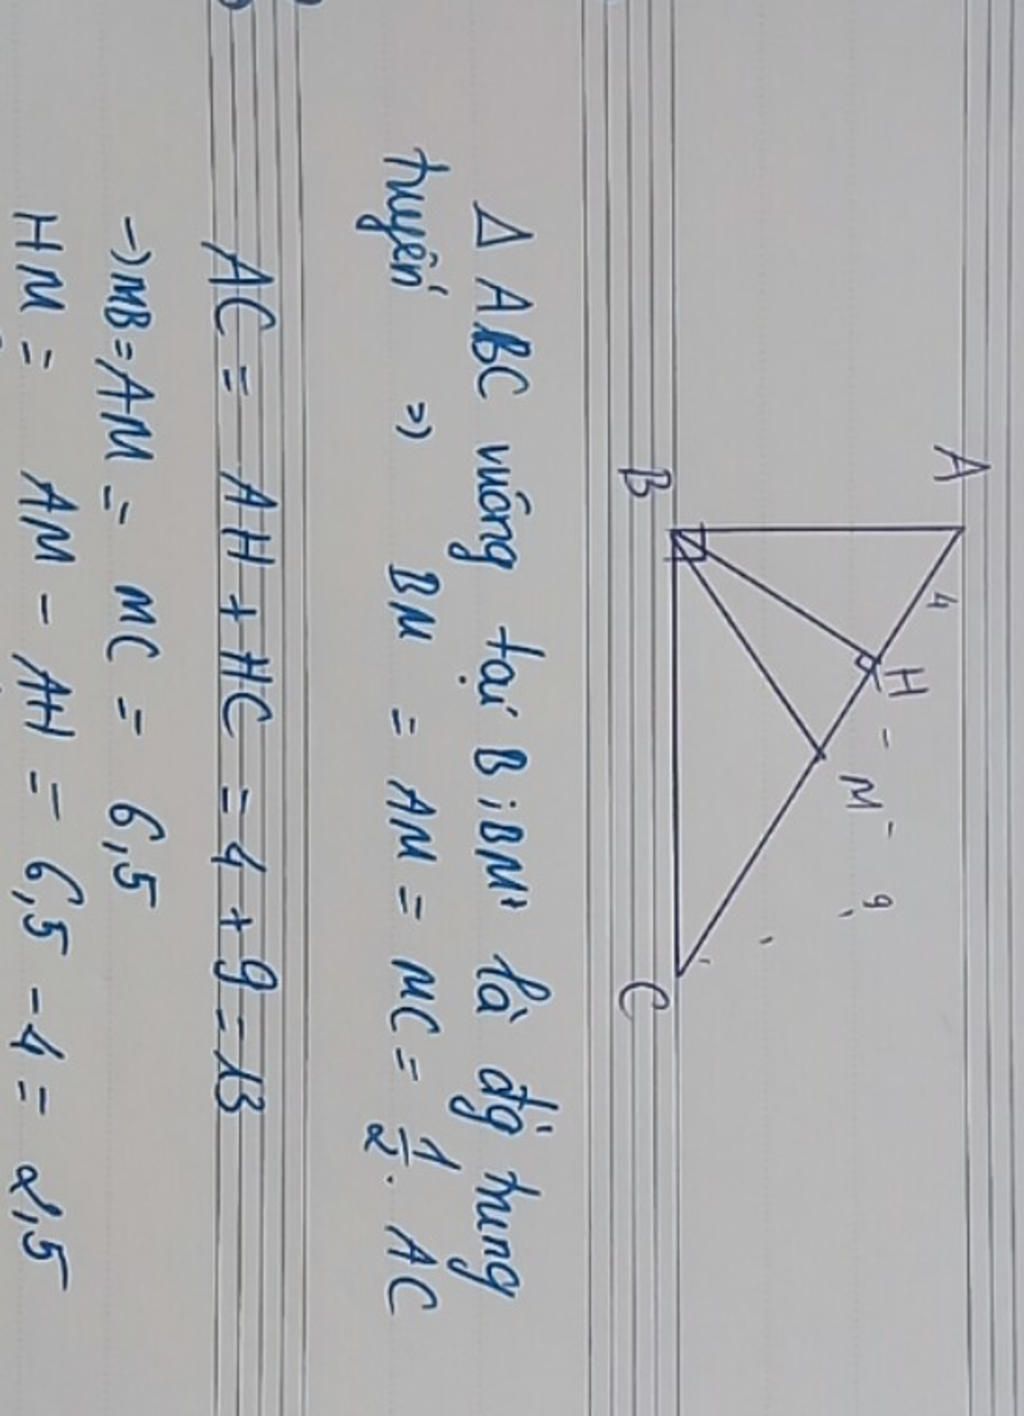 A
4
H
M
9
B
C
Δ ABC vuông tại B; BM là đg trung
tuyến => BM = AM = MC = 1/2 . AC
AC = AH + HC = 4 + 9 = 13
→ MB = AM = MC = 6,5
HM = AM - AH = 6,5 - 4 = 2,5